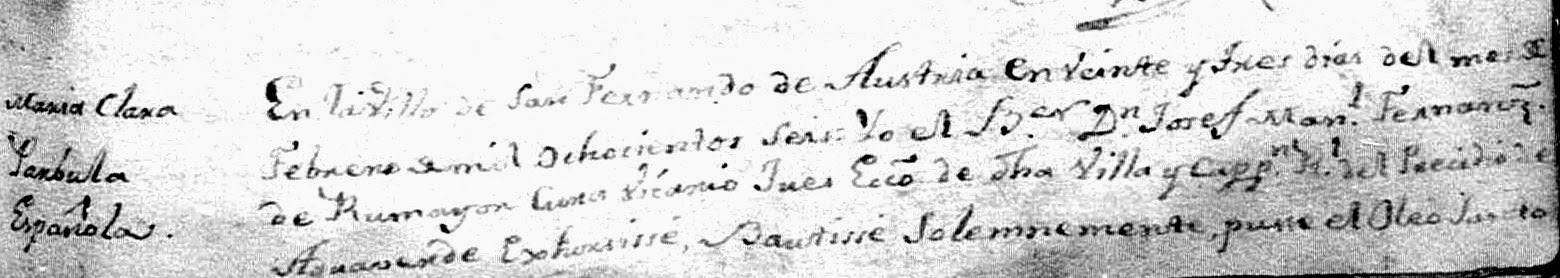 Maria Clara
Parbula
Española.
En la Villa de San Fernando de Austria en veinte y tres dias del mes de
Febrero de mil ochocientos seis Yo el B.er D.n Josef Man.l Fernanz.
de Rumayor Cura Vicario Jues Ecco de dha Villa y Capp.n R.l del Precidio de
Aguaverde Exhorsisé, Bautisé Solemnemente, puse el Oleo Santo